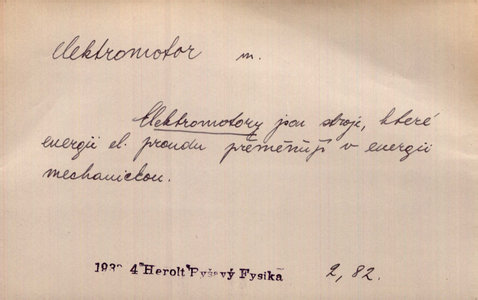 elektromotor m.
Elektromotory jsou stroje, které
energii el. proudu přeměňují v energii
mechanickou.
4 Herolt Ryšavý Fysika 2, 82.